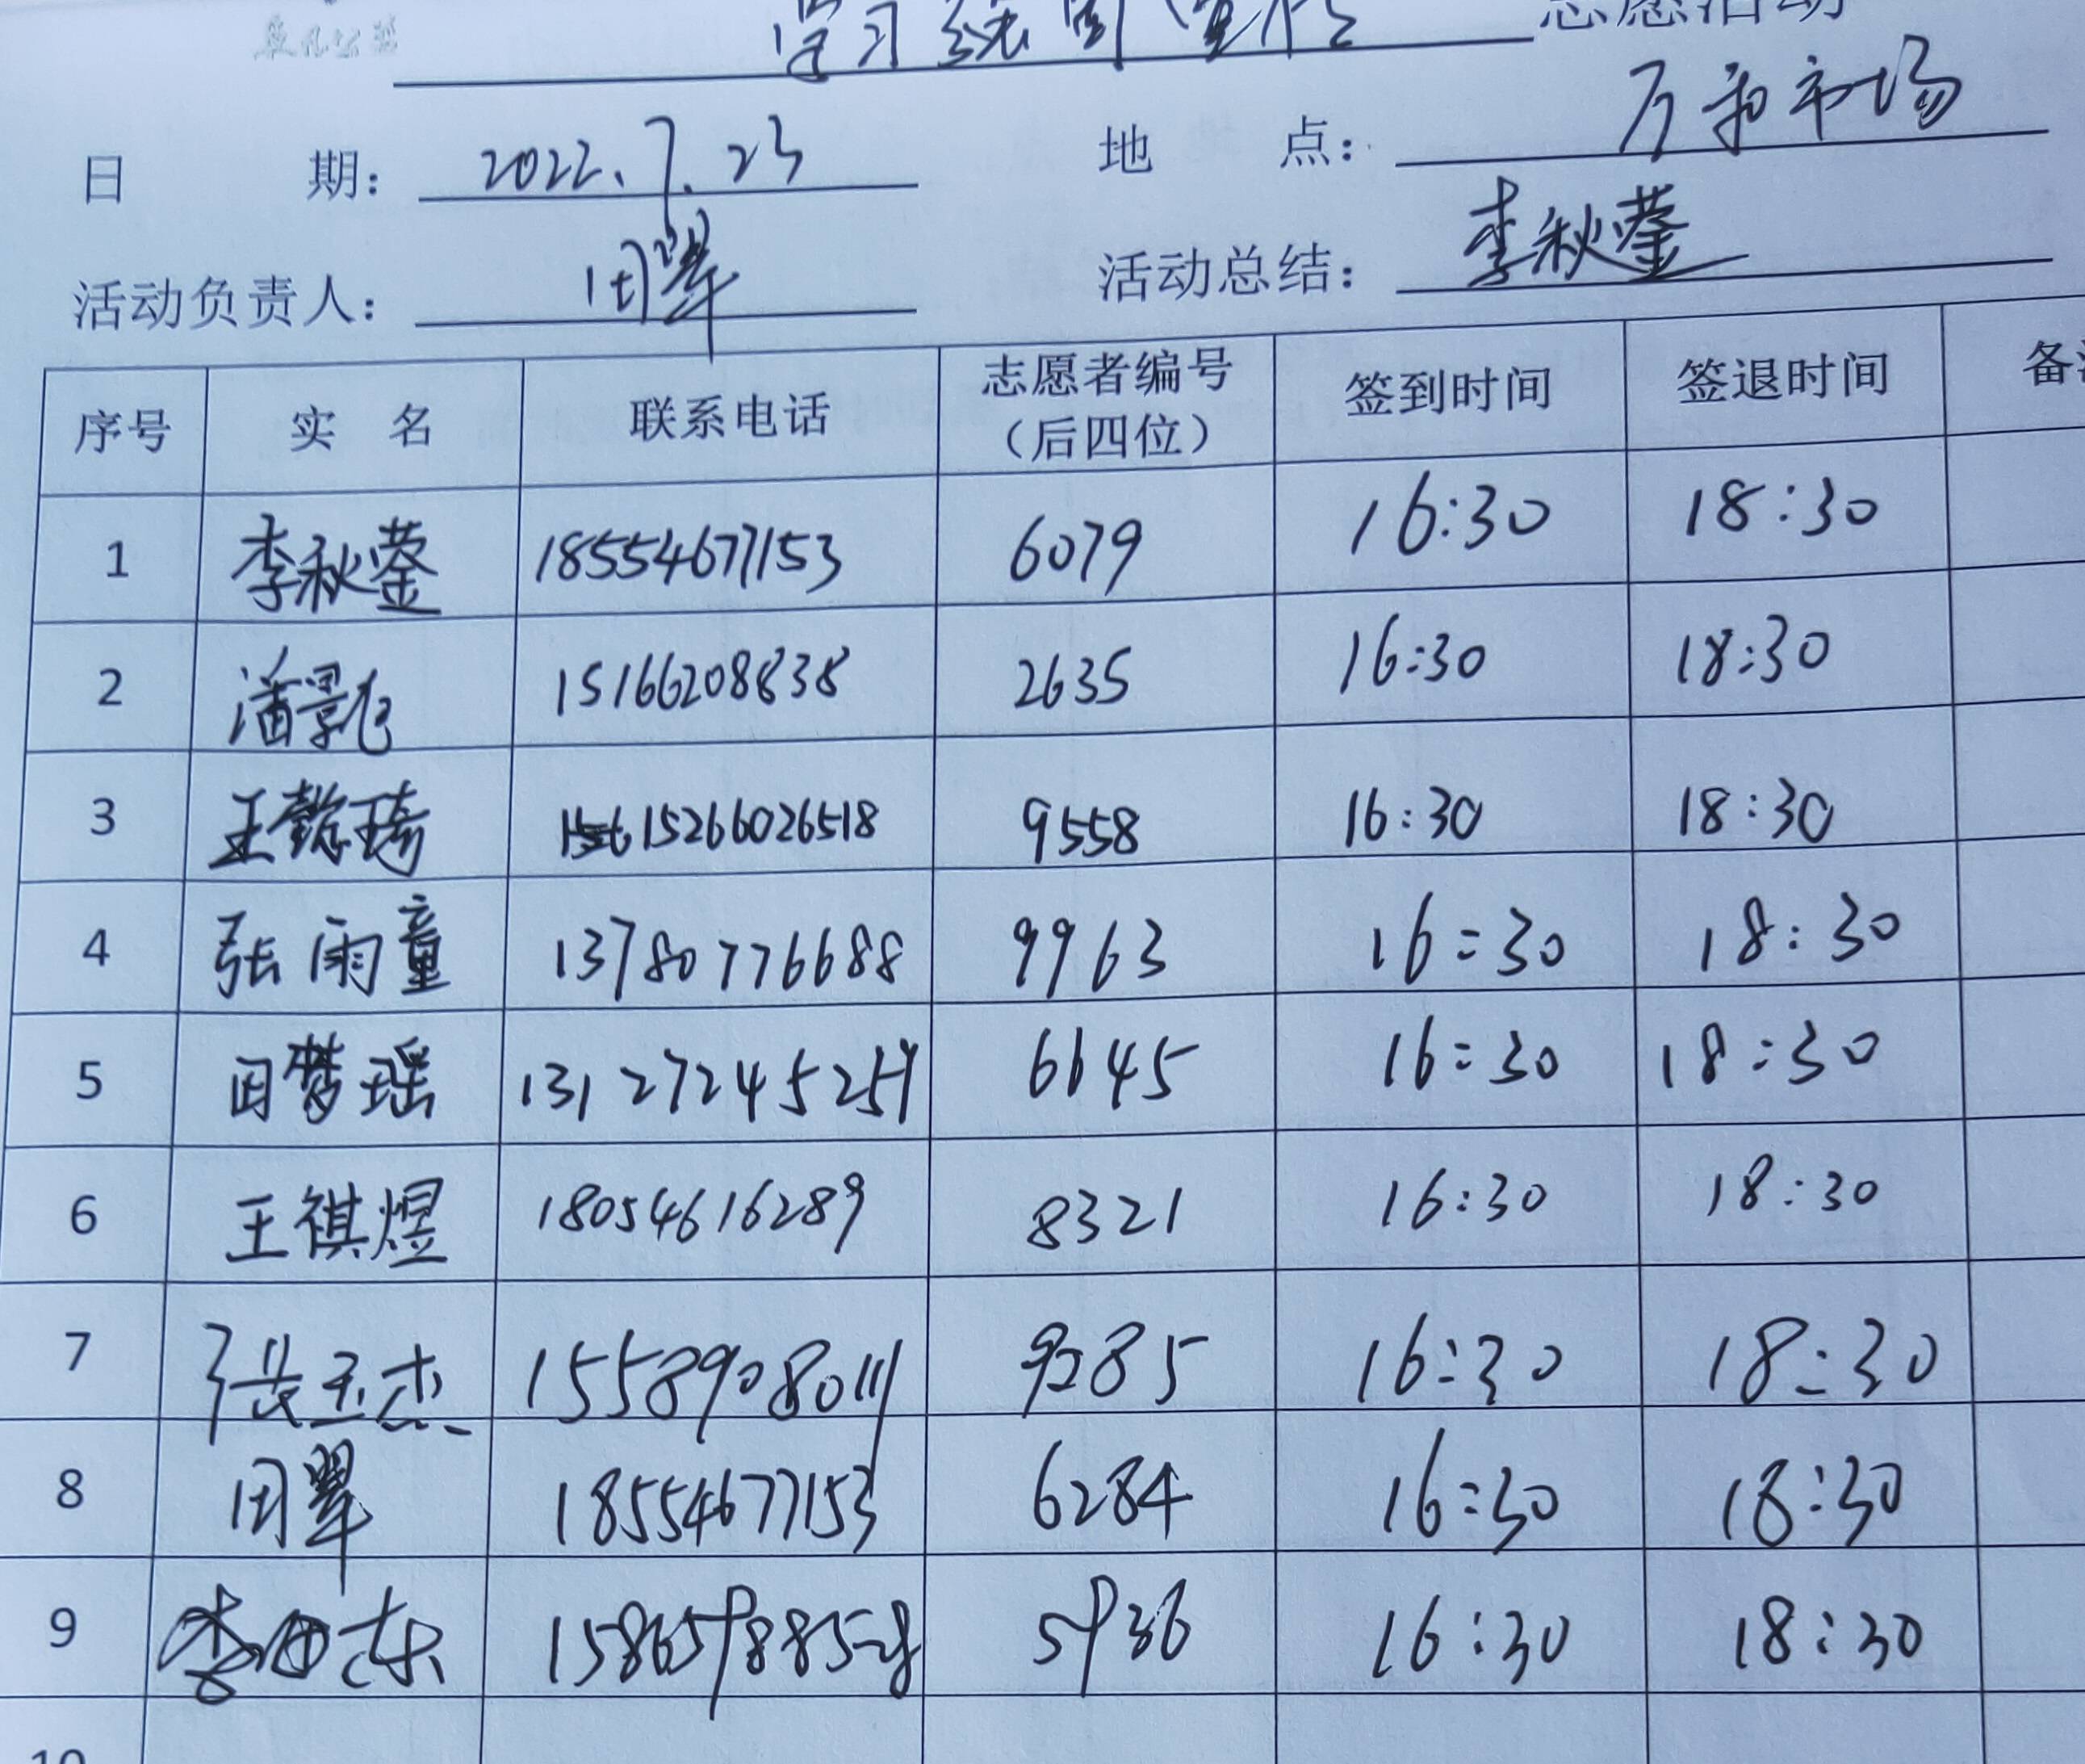 学习
志愿活动
日 期： 2022.7.23 地 点： 万和市场
活动负责人： 田翠 活动总结： 李秋蓥
序号 实 名 联系电话 志愿者编号（后四位） 签到时间 签退时间 备
1 李秋蓥 18554677153 6079 16:30 18:30
2 潘景飞 15166208838 2635 16:30 18:30
3 王懿琦 15266026518 9558 16:30 18:30
4 张雨童 13780776688 9963 16:30 18:30
5 田梦瑶 13127245259 6645 16:30 18:30
6 王祺煜 18054616289 8321 16:30 18:30
7 张玉杰 15589908011 9285 16:30 18:30
8 田翠 18554677153 6284 16:30 18:30
9 李 东 5936 16:30 18:30
10